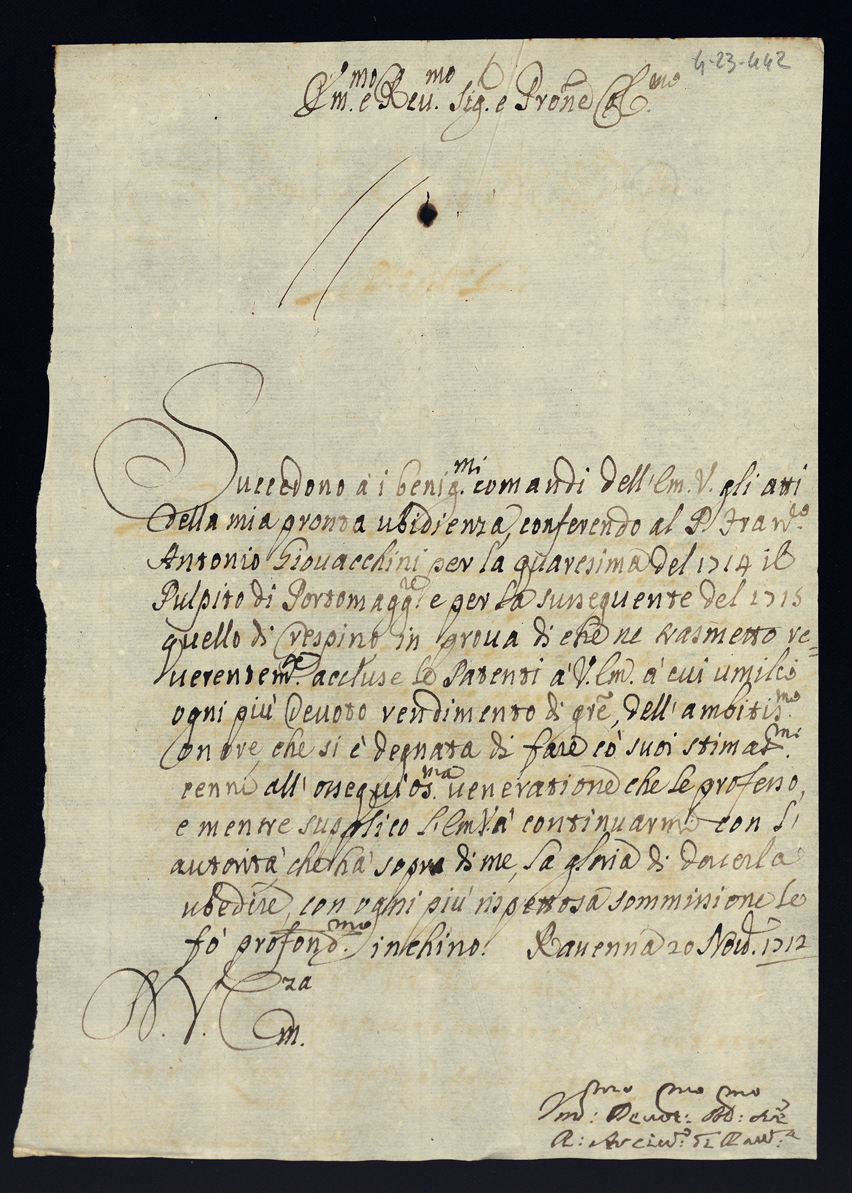 4-23-442
Em.mo e Rev.mo Sig. e Prone Col.mo
Succedono à i benig.mi comandi dell' Em. V. gli atti
della mia pronta ubidienza, conferendo al P. Fran.co
Antonio Giovacchini per la quaresima del 1714 il
Pulpito di Portomagg.re e per la susseguente del 1715
quello di Crespino, in prova di che ne trasmetto re=
verentem.te accluse le Patenti à V. Em. à cui umilio
ogni più devoto rendimento di grẽ, dell' ambitis.mo
onore, che si è degnata di fare cõ suoi stimat.mi
cenni all' ossequios.ma veneratione che le professo,
e mentre supplico l' Em. V. à continuarmi con l'
autorità, che hà sopra di me, la gloria di doverla
ubedire, con ogni più rispettosa sommissione le
fò profond.mo inchino. Ravenna 20 Nov. 1712
D. V. Em.za
Um.mo Devot.mo Obl.mo
A: Arciv.o di Rav.a